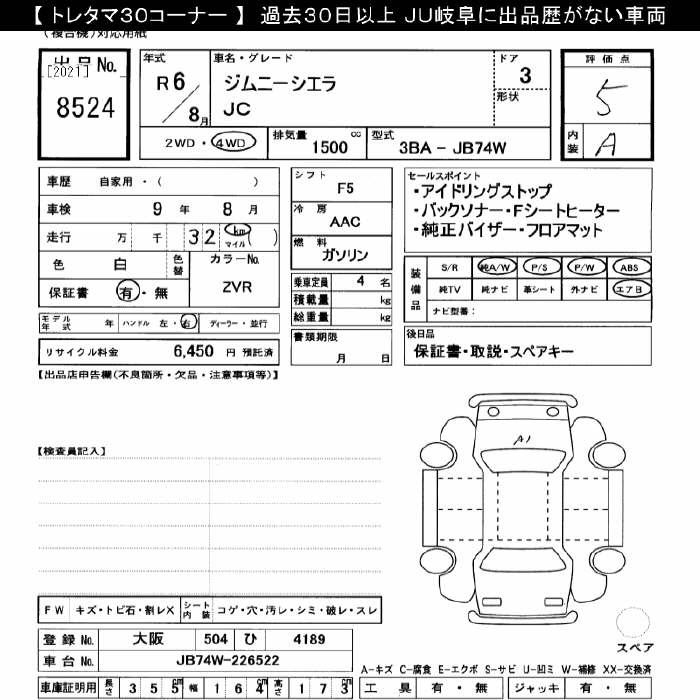 【 トレタマ30コーナー 】 過去30日以上 JU岐阜に出品歴がない車両
(複合機)対応用紙
出品No.
[2021]
8524
年式
R 6 / 8月
車名・グレード
ジムニーシエラ
JC
ドア
3
形状
2WD・4WD
排気量 1500 cc
型式 3BA - JB74W
評価点
5
内装 A
車歴 自家用・( )
車検 9年 8月
走行 万 千 32 km マイル ( )
色 白 色替
カラーNo. ZVR
保証書 有・無
モデル年式 年 ハンドル 左・右 ディーラー・並行
リサイクル料金 6,450 円 預託済
シフト F5
冷房 AAC
燃料 ガソリン
乗車定員 4 名
積載量 kg
総重量 kg
書類期限 月 日
セールスポイント
・アイドリングストップ
・バックソナー・Fシートヒーター
・純正バイザー・フロアマット
装備品
S/R 純A/W P/S P/W ABS
純TV 純ナビ 革シート 外ナビ エアB
ナビ型番:
後日品
保証書・取説・スペアキー
【出品店申告欄(不良箇所・欠品・注意事項等)】
【検査員記入】
A1
FW キズ・トビ石・割レX シート内装 コゲ・穴・汚レ・シミ・破レ・スレ
登録No. 大阪 504 ひ 4189
車台No. JB74W-226522
車庫証明用 長さ 355cm 幅 164cm 高さ 173cm
スペア
A-キズ C-腐食 E-エクボ S-サビ U-凹ミ W-補修 XX-交換済
工具 有・無 ジャッキ 有・無